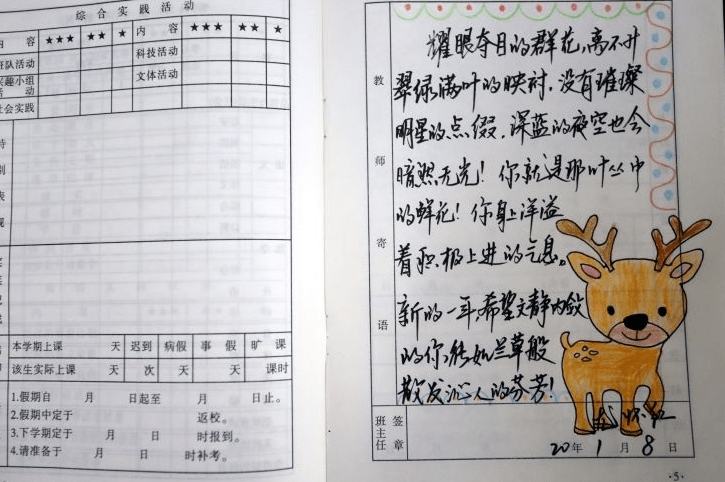 综合实践活动
内容 ★★★ ★★ ★ 内容 ★★★ ★★ ★
班队活动 科技活动
兴趣小组活动 文体活动
社会实践
本学期上课 天 迟到 病假 事假 旷课
该生实际上课 天 次 天 天 课时
1.假期自 月 日起至 月 日止。
2.假期中定于 返校。
3.下学期定于 月 日 时报到。
4.请准备于 月 日 时补考。
教师寄语
耀眼夺目的群花,离不开
翠绿满叶的映衬,没有璀璨
明星的点缀,深蓝的夜空也会
暗然无光!你就是那叶丛中
的鲜花!你身上洋溢
着积极上进的气息。
新的一年,希望文静内敛
的你,能如兰草般
散发沁人的芬芳!
班主任签章
20 年 1 月 8 日
·5·